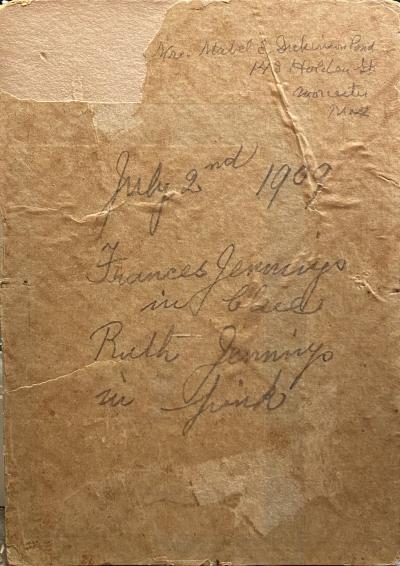 Mrs. Mabel S Dickinson Pond
148 Holden St.
Worcester
Mass
July 2nd 1909
Frances Jennings
in blue
Ruth Jennings
in pink